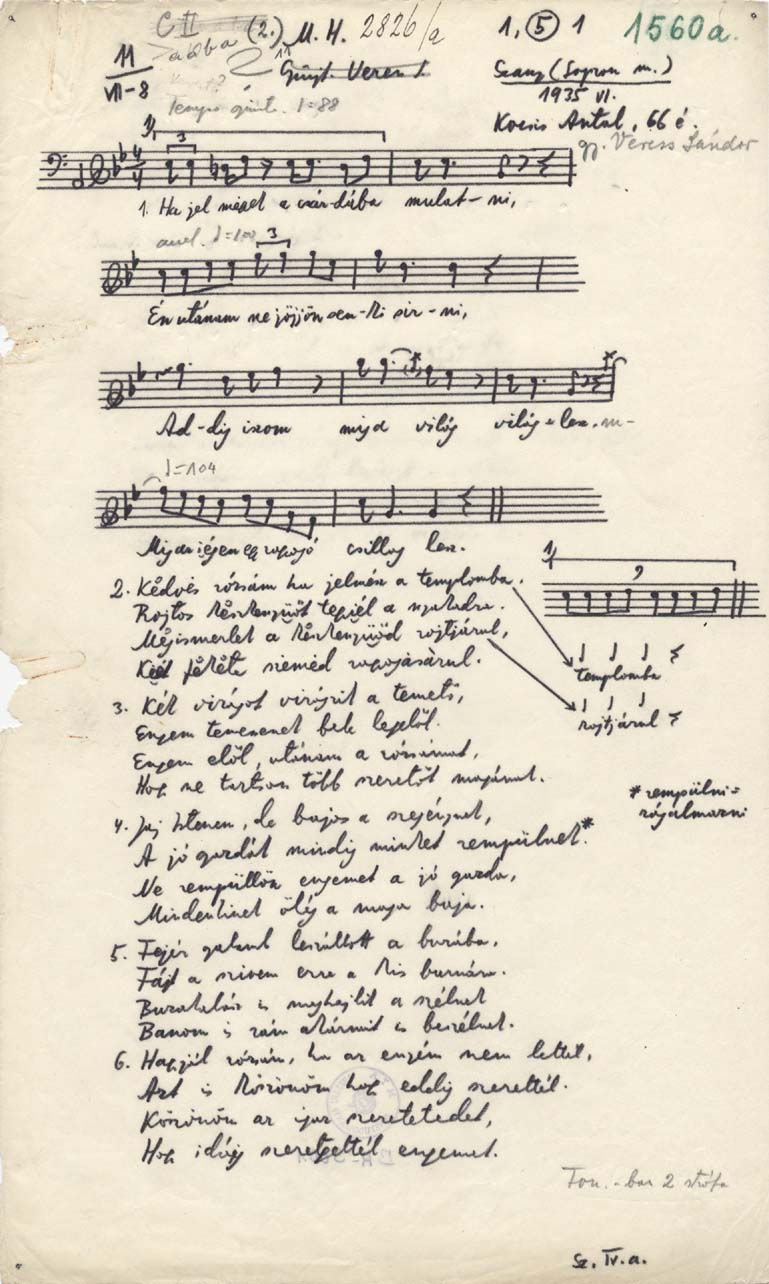 C II (2.) M. H. 2826/a 1, 5 1 1560a.
11
VII-8
Gyüjt. Veress S.
Szany (Sopron m.)
1935 VI.
Tempo giusto ♩=88
Kocsis Antal, 66 é.
gy. Veress Sándor
1. Ha jel mének a csár-dába mulat-ni,
♩=100
Én utánam ne jöjjön sen-ki sir-ni,
Ad-dig iszom míg a világ világ lesz. m-
♩=104
Míg az égen egy ragyogó csillag lesz.
2. Kedves rózsám ha jelmén a templomba,
Rojtos keszkenyüőt tegyél a nyakadra.
Megismerlek a keszkenyüőd rojtjárul,
Két fekete szemed ragyogásárul.
templomba
rojtjárul
3. Két virágot virágzik a temető,
Engem temessenek bele legelől.
Engem elől, utánam a rózsámat,
Hogy ne tartson több szeretőt magának.
* rempülni =
rágalmazni
4. Jaj Istenem, de bajos a szegénynek,
A jó gazdák mindig minket rempülnek.*
Ne rempüllön engemet a jó gazda,
Mindenkinek elég a maga baja.
5. Fejér galamb leszállott a buzába,
Fájt a szivem erre a kis barnára.
Buzakalász is meghajlik a szélnek
Bánom is rám akármit is beszélnek.
6. Hagyjál rózsám, ha az enyém nem lettél,
Azt is köszönöm hogy eddig szerettél.
Köszönöm az igaz szeretetedet,
Hogy idáig szeretgettél engemet.
Fon.-ban 2 strófa
Sz. IV. a.